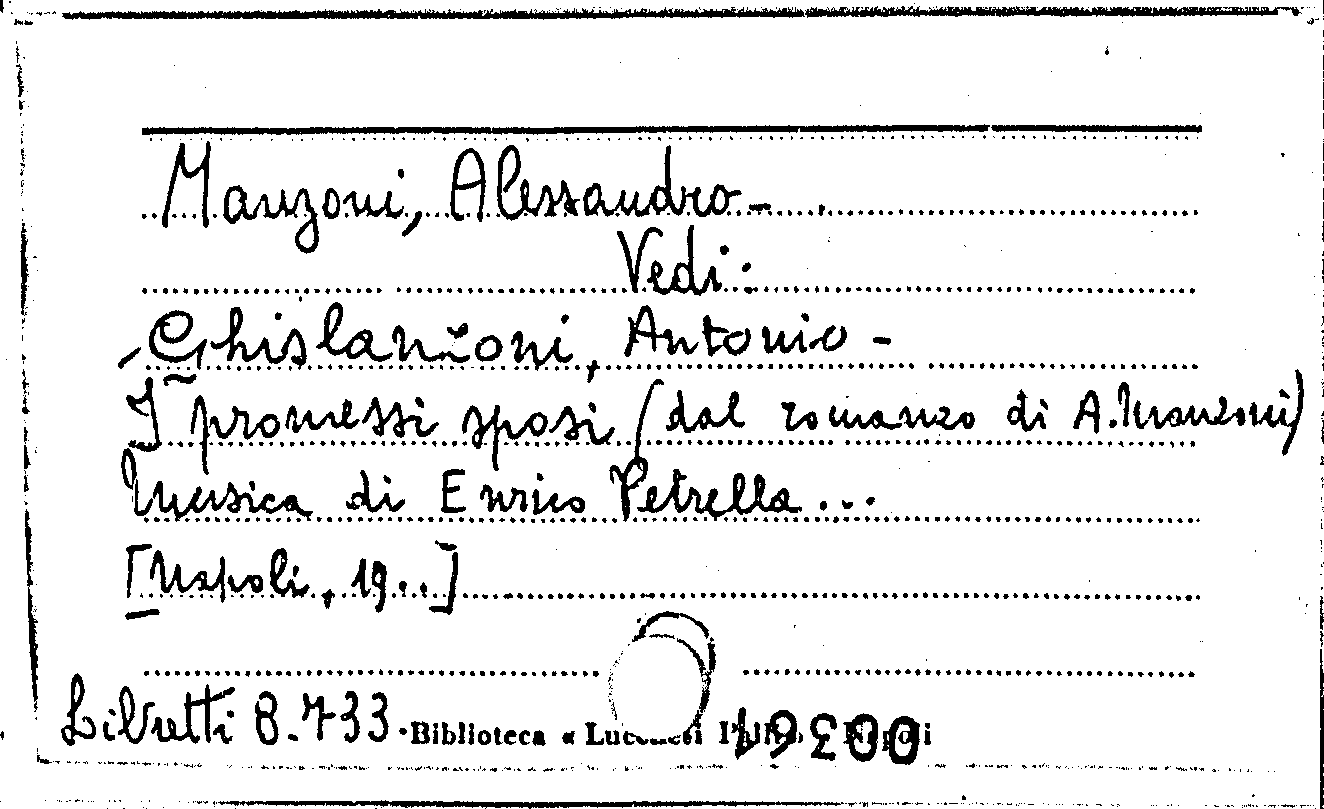 Manzoni, Alessandro -
Vedi:
Ghislanzoni, Antonio -
I promessi sposi (dal romanzo di A. Manzoni)
Musica di Enrico Petrella...
[Napoli, 19..]
Libretti 8.733 Biblioteca «